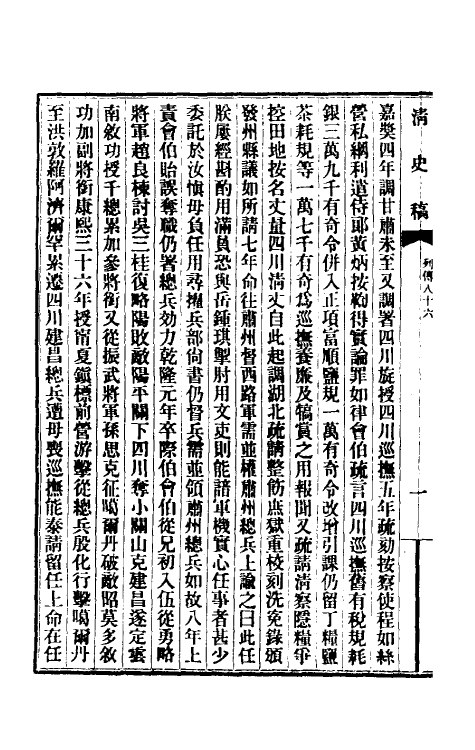 清史稿
列傳八十六
一
嘉獎四年調甘肅未至又調署四川旋授四川巡撫五年疏劾按察使程如絲
營私網利遣侍郎黃炳按鞫得實論罪如律會伯疏言四川巡撫舊有稅規耗
銀三萬九千有奇令併入正項富順鹽規一萬有奇令改增引課仍留丁糧鹽
茶耗規等一萬七千有奇為巡撫養廉及犒賞之用報聞又疏請清察隱糧爭
控田地按名丈量四川清丈自此起調湖北疏請整飭庶獄重校刻洗冤錄頒
發州縣議如所請七年命往肅州督西路軍需並權肅州總兵上諭之曰此任
朕屢經斟酌用滿員恐與岳鍾琪掣肘用文吏則能諳軍機實心任事者甚少
委託於汝愼毋負任用尋擢兵部尙書仍督兵需並領肅州總兵如故八年上
責會伯貽誤奪職仍署總兵効力乾隆元年卒際伯會伯從兄初入伍從勇略
將軍趙良棟討吳三桂復略陽敗敵陽平關下四川奪小關山克建昌遂定雲
南敘功授千總累加參將銜又從振武將軍孫思克征噶爾丹破敵昭莫多敘
功加副將銜康熙三十六年授甯夏鎭標前營游擊從總兵殷化行擊噶爾丹
至洪敦羅阿濟爾罕累遷四川建昌總兵遭母喪巡撫能泰請留任上命在任